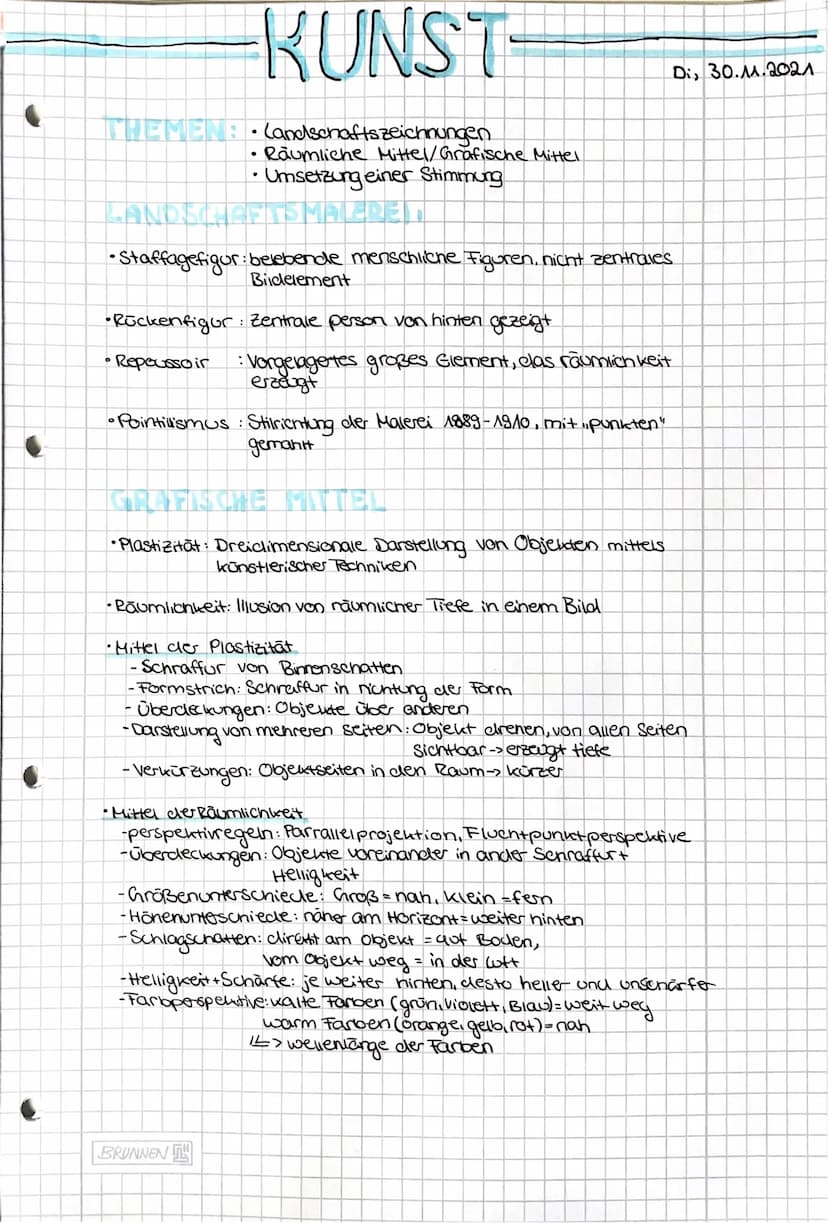 KUNST
Di, 30.11.2021
THEMEN: • Landschaftszeichnungen
• Räumliche Mittel/Grafische Mittel
• Umsetzung einer Stimmung
LANDSCHAFTSMALEREI:
• Staffagefigur: belebende menschliche Figuren, nicht zentrales
Bildelement
• Rückenfigur: Zentrale person von hinten gezeigt
• Repoussoir : Vorgelagertes großes Element, das räumlichkeit
erzeugt
• Pointilismus : Stilrichtung der Malerei 1889-1910, mit „punkten"
gemahlt
GRAFISCHE MITTEL
• Plastizität: Dreidimensionale Darstellung von Objekten mittels
künstlerischer Techniken
• Räumlichkeit: Illusion von räumlicher Tiefe in einem Bild
• Mittel der Plastizität
- Schraffur von Binnenschatten
- Formstrich: Schraffur in richtung der Form
- Überdeckungen: Objekte über anderen
- Darstellung von mehreren seiten: Objekt drehen, von allen Seiten
sichtbar -> erzeugt tiefe
- Verkürzungen: Objektseiten in den Raum -> kürzer
• Mittel der Räumlichkeit
- perspektivregeln: Parrallelprojektion, Fluchtpunktperspektive
- Überdeckungen: Objekte voreinander in ander Schraffur+
Helligkeit
- Größenunterschiede: Groß = nah, klein = fern
- Höhenunteschiede: näher am Horizont = weiter hinten
- Schlagschatten: direkt am Objekt = auf Boden,
vom Objekt weg = in der luft
- Helligkeit + Schärfe: je weiter hinten, desto heller und unschärfer
- Farbperspektive: kalte Farben (grün, Violett, Blau) = weit weg
warm Farben (orange, gelb, rot) = nah
↳> wellenlänge der Farben
BRUNNEN